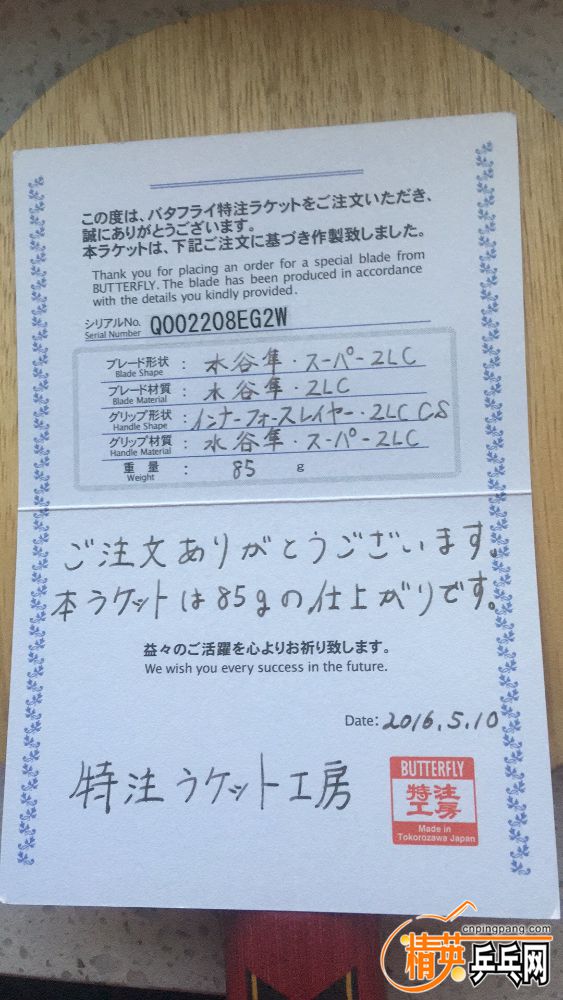 この度は、バタフライ特注ラケットをご注文いただき、
誠にありがとうございます。
本ラケットは、下記ご注文に基づき作製致しました。
Thank you for placing an order for a special blade from
BUTTERFLY. The blade has been produced in accordance
with the details you kindly provided.
シリアルNo. Q002208EG2W
Serial Number
ブレード形状 : 水谷隼・スーパーZLC
Blade Shape
ブレード材質 : 水谷隼・ZLC
Blade Material
グリップ形状 : インナーフォースレイヤー・ZLC CS
Handle Shape
グリップ材質 : 水谷隼・スーパーZLC
Handle Material
重量 : 85 g
Weight
ご注文ありがとうございます。
本ラケットは85gの仕上がりです。
益々のご活躍を心よりお祈り致します。
We wish you every success in the future.
Date: 2016.5.10
特注ラケット工房
BUTTERFLY
特注
工房
Made in
Tokorozawa Japan
cnpingpang.com
精英乒乓网